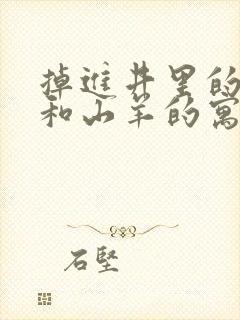 掉进井里的
和山羊的寓
石坚